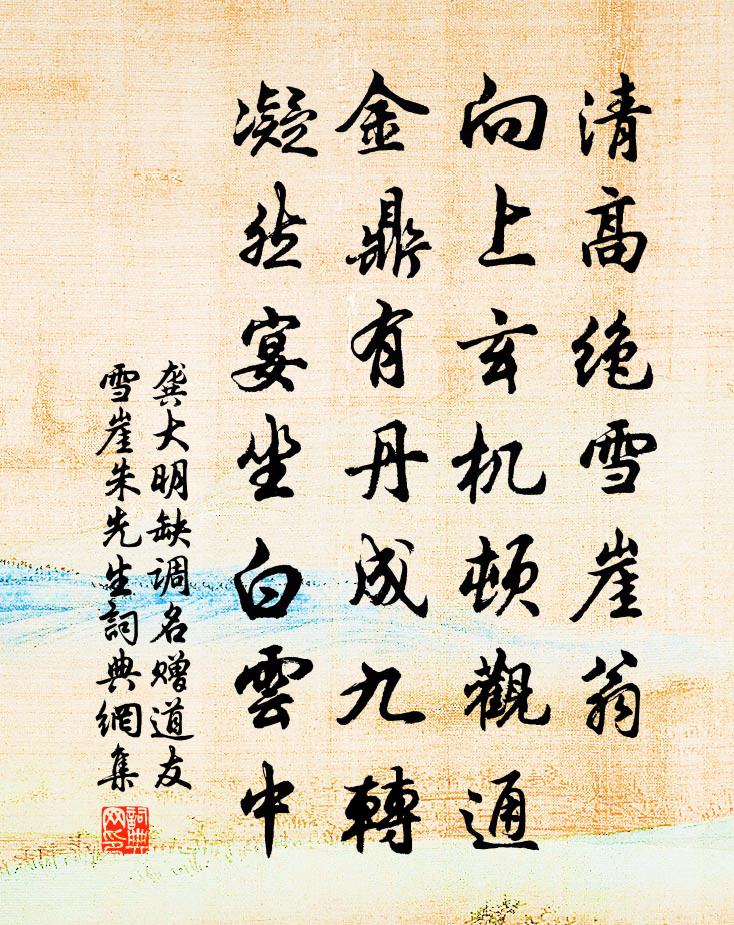 清高绝雪崖翁
向上玄机顿觀通
金鼎有丹成九轉
凝然宴坐白雲中
龚大明缺调名赠道友
雪崖朱先生詞典網集
詞典網印